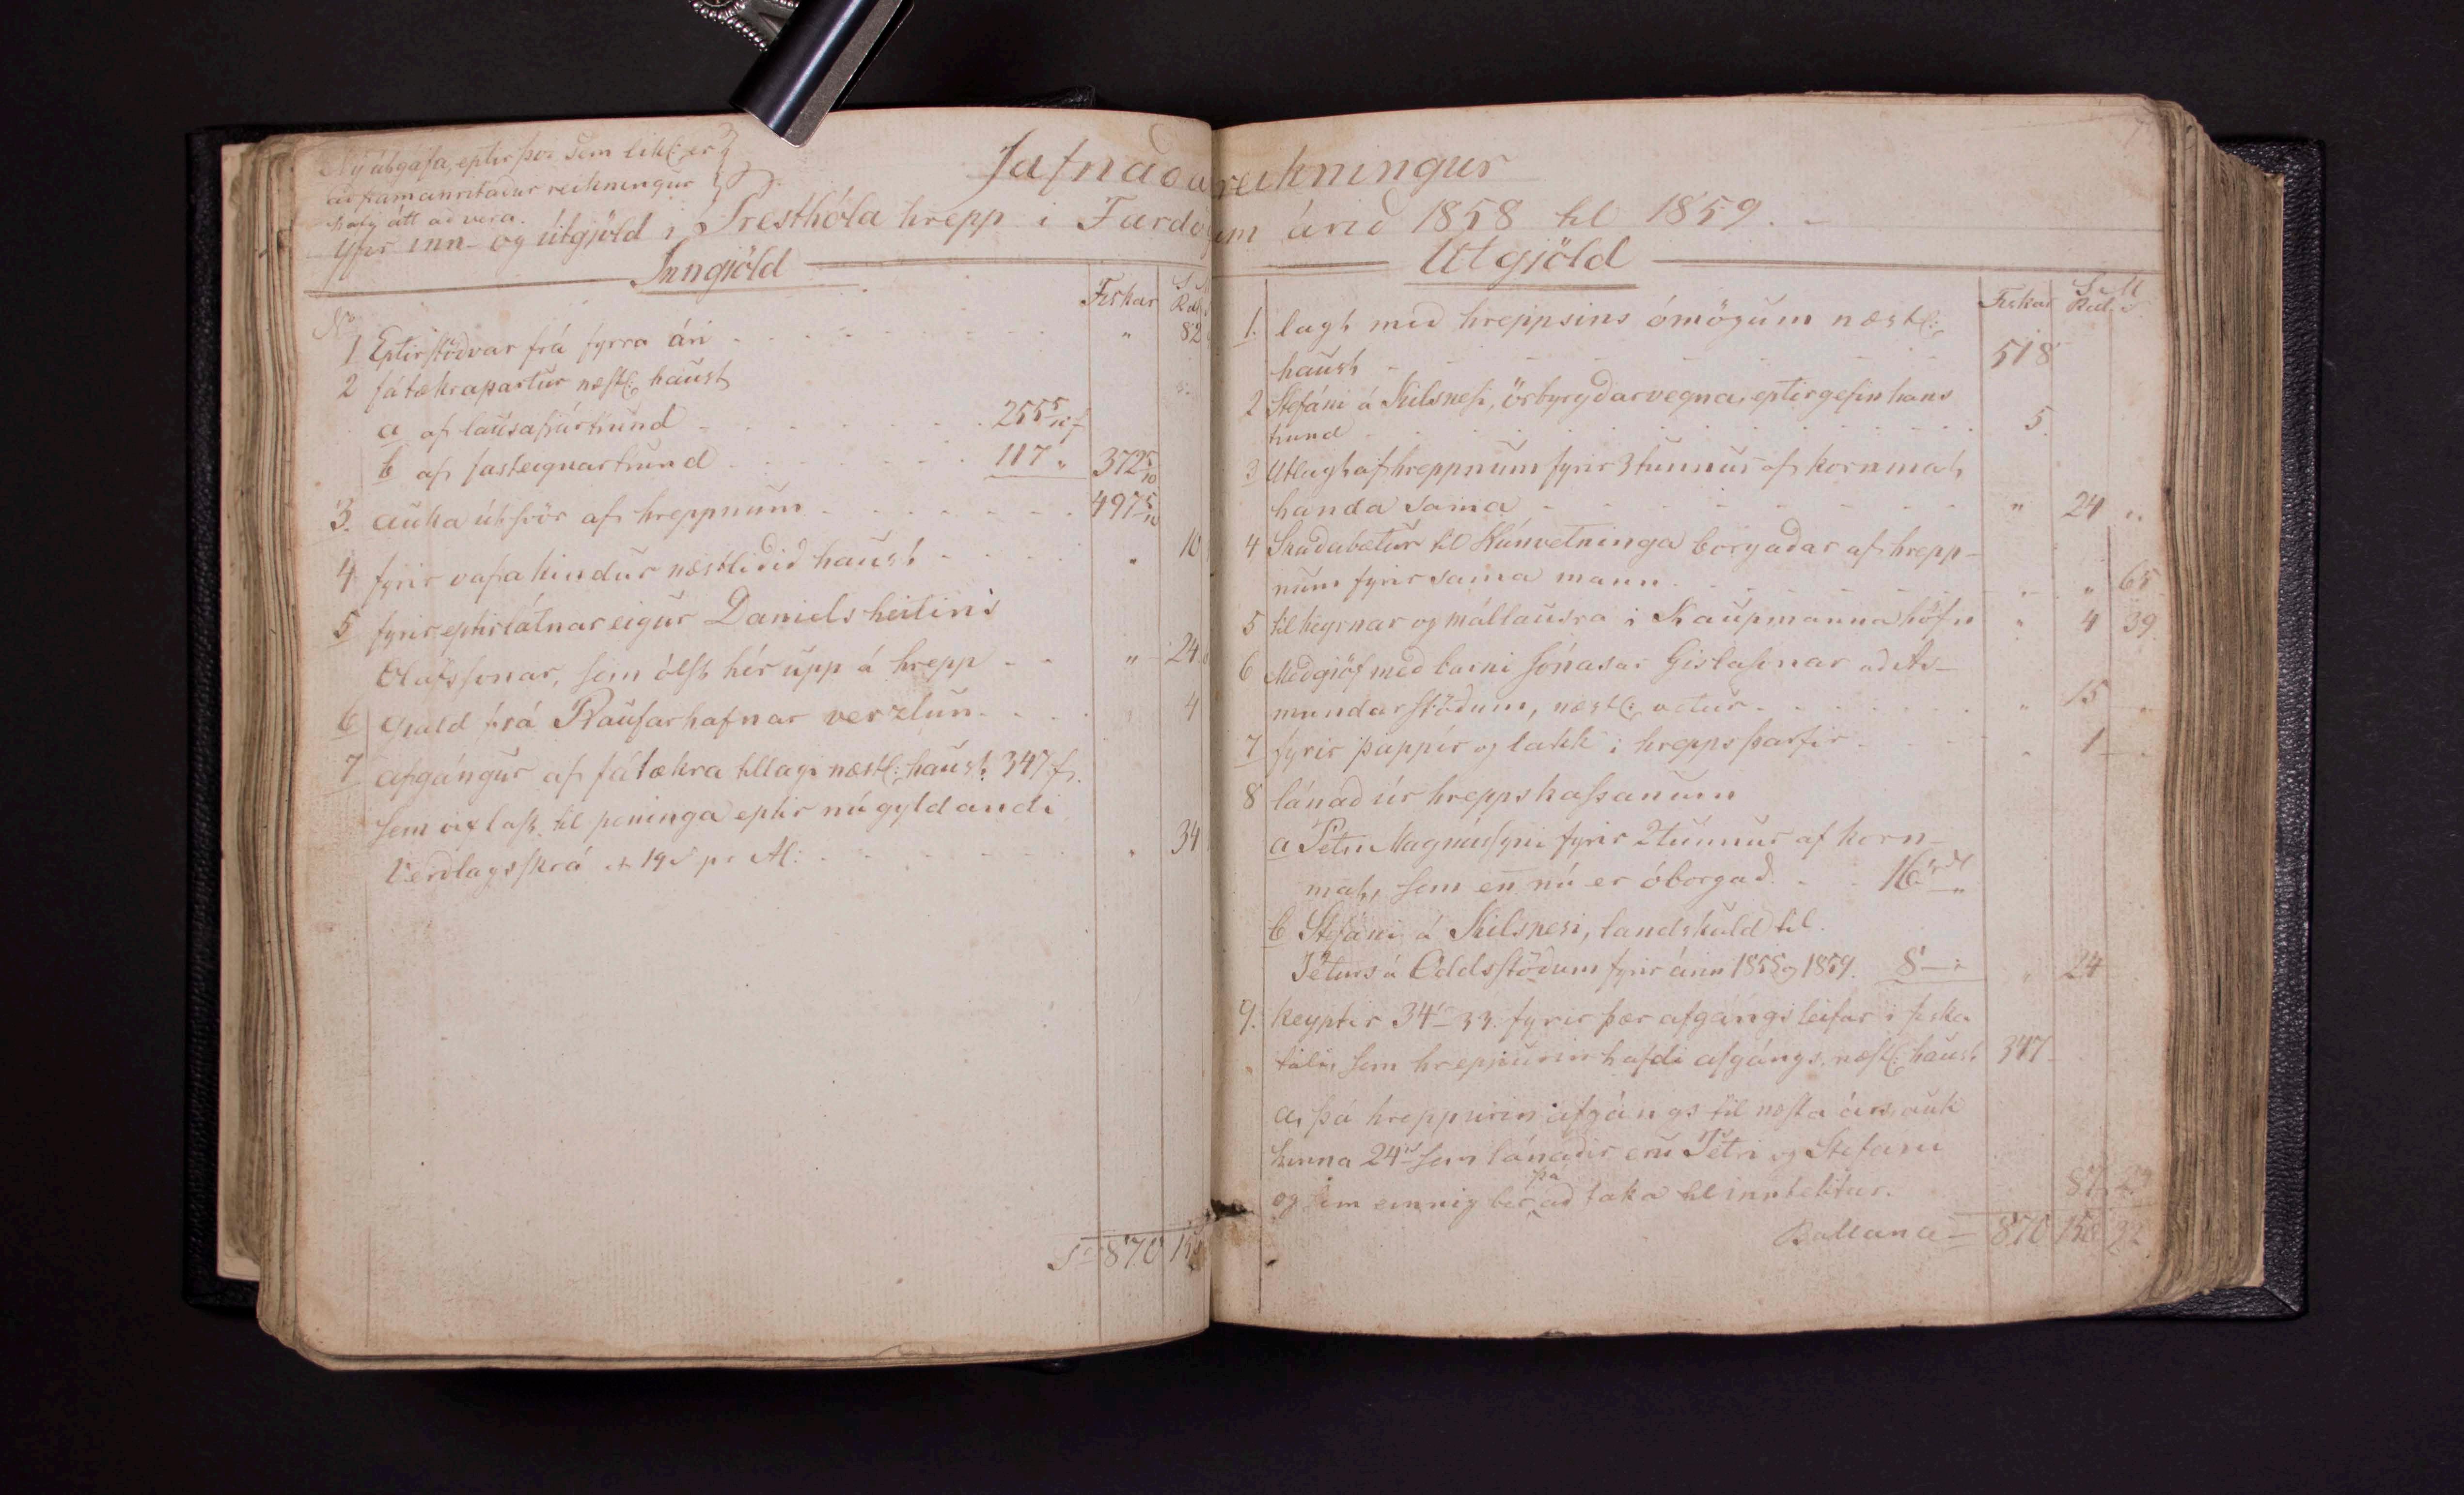 Ný útgáfa, eptir því sem líkl: er
að framanritaður reikningur
hafi átt að vera.
Jafnaða reikningur
Yfir inn- og útgjöld í Presthóla hrepp í Fardögum árið 1858 til 1859.
Inngjöld
No Fiskar
1 Eptirstöðvar frá fyrra ári „ 82
2 fátækrapartur næstl: haust
a af lausafjártíund 255 5/10 f
b af fasteignartíund 117 „ 372 5/10
3. auka útsvör af hreppnum 497 5/10
4 fyrir vafakindur næstliðið haust „ 10
5 fyrir eptirlátnar eigur Daniels heitins
Olafssonar, sem ólst hér upp á hrepp „ 24
6 Gjald frá Raufarhafnar verzlun „ 4
7 afgángur af fátækra tillagi næstl: haust 347 f.
sem víxlast til peninga eptir núgyldandi
Verðlagsskrá 19 s pr Al: „ 34
S= 870
Utgjöld
Fiskar S. M
Rd. s
1. lagt með hreppsins ómögum næstl:
haust 518
2 Stefáni á Skilsnesi, örbyrgðar vegna, eptirgefin hans
tíund 5.
3 Utlagt af hreppnum fyrir 3 tunnur af kornmat,
handa sama „ 24 „
4 Skaðabætur til Húnvetninga borgaðar af hrepp-
num fyrir sama mann „ „ 65
5 til heyrnar og mállausra í Kaupmannahöfn „ 4 39
6 Meðgjöf með barni Jónasar Gislasonar að As-
mundarstöðum, næstl: vetur „ 15 „
7 fyrir pappír og lakk í hreppsþarfir „ 1 „
8 lánað úr hreppskassanum
a Petri Magnússyni fyrir 2 tunnur af korn-
mat, sem enn nú er óborgað 16 rd „
b Stefáni á Skilsnesi, landskuld til
Péturs á Oddsstöðum fyrir árin 1858 og 1859. 8 „ 24
9. keyptir 34 33 fyrir þær afgángsleifar í fiska
tali, sem hreppurinn hafði afgángs næstl: haust 347
a, þá hreppurinn afgángs til næsta árs, auk
hinna 24 sem lánaðir eru Pétri og Stefani
og sem einnig ber þá að taka til inntektar. 87
Ballance = 870